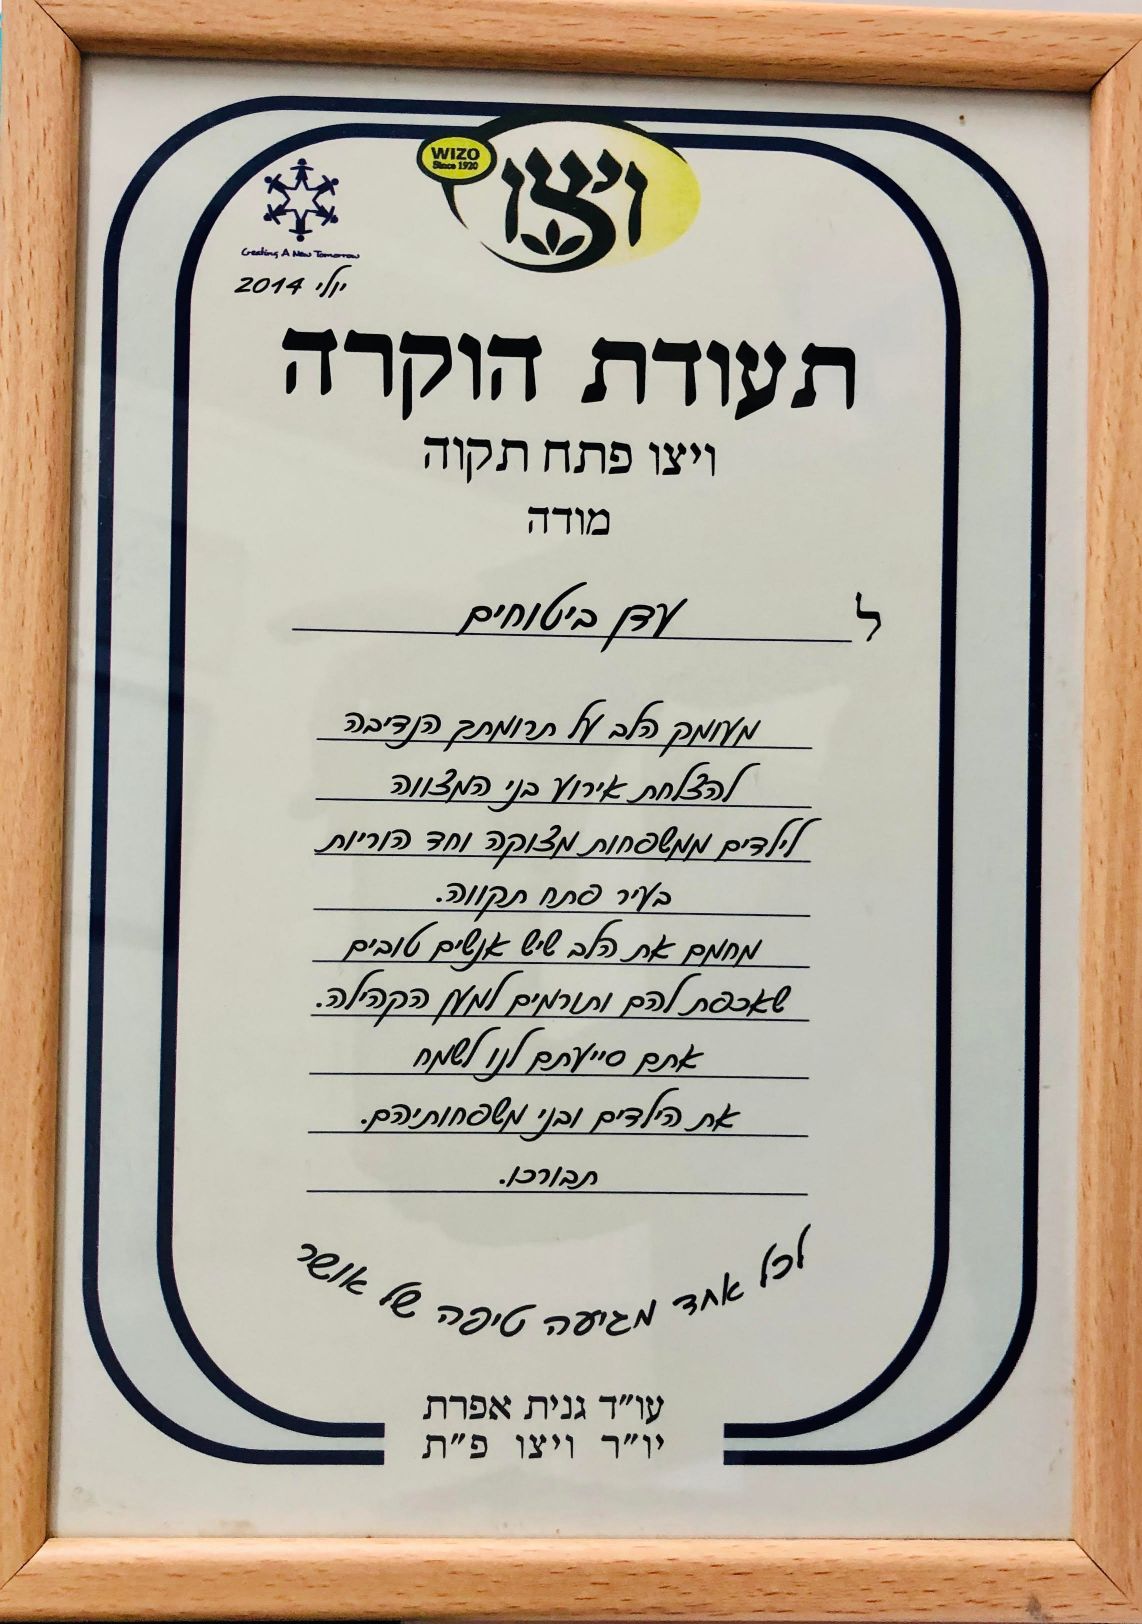 WIZO
Since 1920
ויצו
Creating A New Tomorrow
יולי 2014
תעודת הוקרה
ויצו פתח תקוה
מודה
ל עדן ביטוחים
מעומק הלב על תרומתך הנדיבה
להצלחת אירוע בני המצווה
לילדים ממשפחות מצוקה וחד הוריות
בעיר פתח תקווה.
מחמם את הלב שיש אנשים טובים
שאכפת להם ותורמים למען הקהילה.
אתם סייעתם לנו לשמח
את הילדים ובני משפחותיהם.
תבורכו.
לכל אחד מגיעה טיפה של אושר
עו״ד גנית אפרת
יו״ר ויצו פ״ת